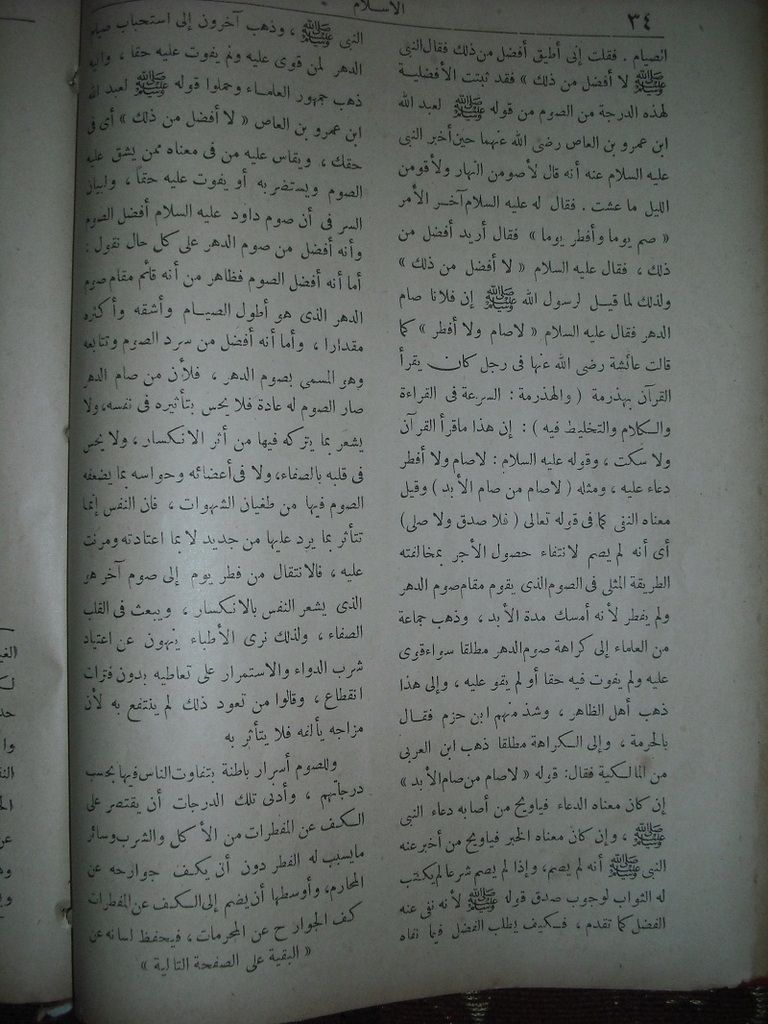 ٣٤
الاسلام
الصيام . فقلت إنى أطيق أفضل من ذلك فقال النبى
ﷺ لا أفضل من ذلك » فقد ثبتت الأفضلية
لهذه الدرجة من الصوم من قوله ﷺ لعبد الله
ابن عمرو بن العاص رضى الله عنهما حين أخبر النبى
عليه السلام عنه أنه قال لأصومن النهار ولأقومن
الليل ما عشت . فقال له عليه السلام آخر الأمر
« صم يوما وأفطر يوما » فقال أريد أفضل من
ذلك ، فقال عليه السلام « لا أفضل من ذلك »
ولذلك لما قيل لرسول الله ﷺ إن فلانا صام
الدهر فقال عليه السلام « لاصام ولا أفطر » كما
قالت عائشة رضى الله عنها فى رجل كان يقرأ
القرآن بهذرمة ( والهذرمة : السرعة فى القراءة
والكلام والتخليط فيه ) : إن هذا ماقرأ القرآن
ولا سكت ، وقوله عليه السلام : لاصام ولا أفطر
دعاء عليه ، ومثله ( لاصام من صام الأبد ) وقيل
معناه النفى كما فى قوله تعالى ( فلا صدق ولا صلى )
أى أنه لم يصم لانتفاء حصول الأجر بمخالفته
الطريقة المثلى فى الصوم الذى يقوم مقام صوم الدهر
ولم يفطر لأنه أمسك مدة الأبد ، وذهب جماعة
من العلماء إلى كراهة صوم الدهر مطلقا سواء قوى
عليه ولم يفوت فيه حقا أو لم يقو عليه ، وإلى هذا
ذهب أهل الظاهر ، وشذ منهم ابن حزم فقال
بالحرمة ، وإلى الكراهة مطلقا ذهب ابن العربى
من المالكية فقال: قوله « لاصام من صام الأبد »
إن كان معناه الدعاء فياويح من أصابه دعاء النبى
ﷺ ، وإن كان معناه الخبر فياويح من أخبر عنه
النبى ﷺ أنه لم يصم، وإذا لم يصم شرعا لم يكتب
له الثواب لوجوب صدق قوله ﷺ لأنه نفى عنه
الفضل كما تقدم ، فكيف يطلب الفضل فيما نفاه
النبى ﷺ ، وذهب آخرون إلى استحباب صيام
الدهر لمن قوى عليه ولم يفوت عليه حقا ، وإليه
ذهب جمهور العلماء وحملوا قوله ﷺ لعبد الله
ابن عمرو بن العاص « لا أفضل من ذلك » أى فى
حقك ، ويقاس عليه من فى معناه ممن يشق عليه
الصوم ويستضر به أو يفوت عليه حقاً ، ولبيان
السر فى أن صوم داود عليه السلام أفضل الصوم
وأنه أفضل من صوم الدهر على كل حال نقول :
أما أنه أفضل الصوم فظاهر من أنه قائم مقام صوم
الدهر الذى هو أطول الصيام وأشقه وأكثره
مقدارا ، وأما أنه أفضل من سرد الصوم وتتابعه
وهو المسمى بصوم الدهر ، فلأن من صام الدهر
صار الصوم له عادة فلا يحس بتأثيره فى نفسه، ولا
يشعر بما يتركه فيها من أثر الانكسار ، ولا يحس
فى قلبه بالصفاء، ولا فى أعضائه وحواسه بما يضعفه
الصوم فيها من طغيان الشهوات ، فان النفس إنما
تتأثر بما يرد عليها من جديد لا بما اعتادته ومرنت
عليه ، فالانتقال من فطر يوم إلى صوم آخر هو
الذى يشعر النفس بالانكسار ، ويبعث فى القلب
الصفاء ، ولذلك نرى الأطباء ينهون عن اعتياد
شرب الدواء والاستمرار على تعاطيه بدون فترات
انقطاع ، وقالوا من تعود ذلك لم ينتفع به لأن
مزاجه يألفه فلا يتأثر به
وللصوم أسرار باطنة بتفاوت الناس فيها بحسب
درجاتهم ، وأدنى تلك الدرجات أن يقتصر على
الكف عن المفطرات من الأكل والشرب وسائر
مايسبب له الفطر دون أن يكف جوارحه عن
المحارم، وأوسطها أن يضم إلى الكف عن المفطرات
كف الجوارح عن المحرمات ، فيحفظ لسانه عن
« البقية على الصفحة التالية »